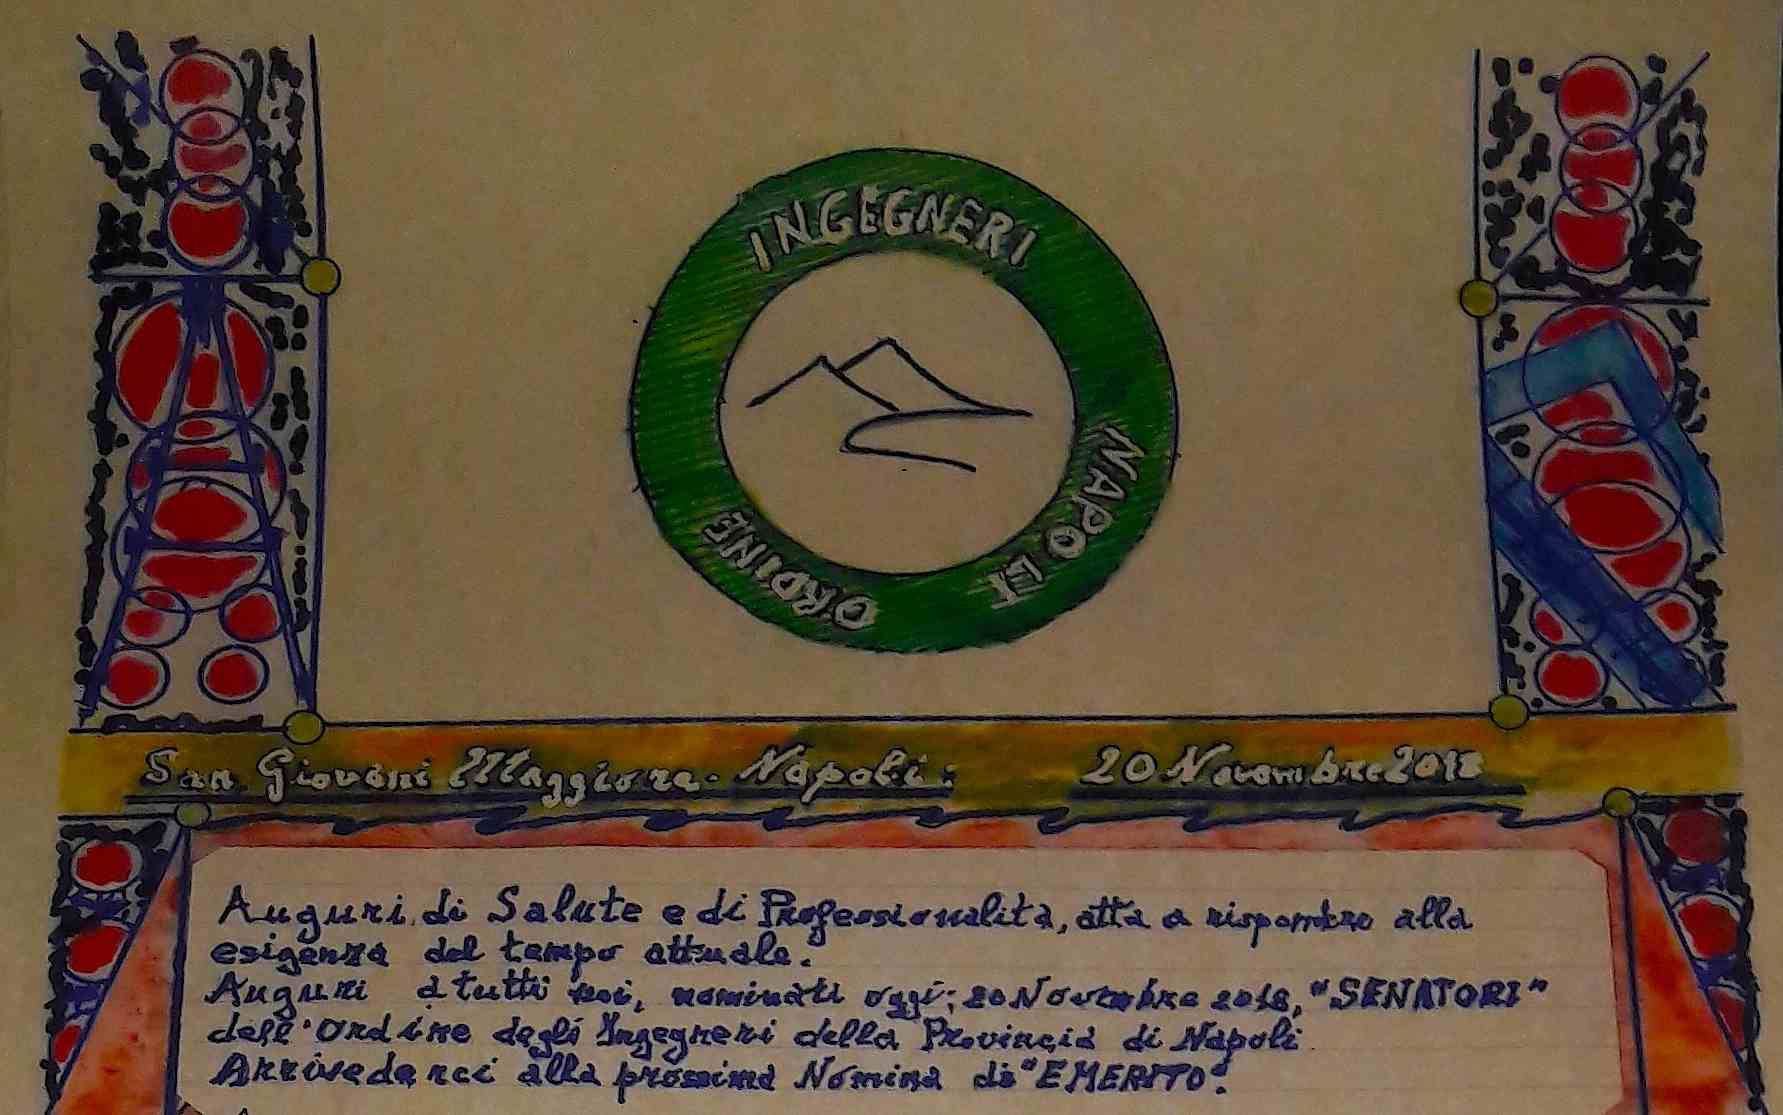 INGEGNERI
NAPOLI
ORDINE
San Giovani Maggiore - Napoli: 20 Novembre 2018
Auguri di Salute e di Professionalità, atta a rispondere alla
esigenza del tempo attuale.
Auguri a tutti noi, nominati oggi; 20 Novembre 2018, "SENATORI"
dell'Ordine degli Ingegneri della Provincia di Napoli
Arrivederci alla prossima Nomina di "EMERITO".